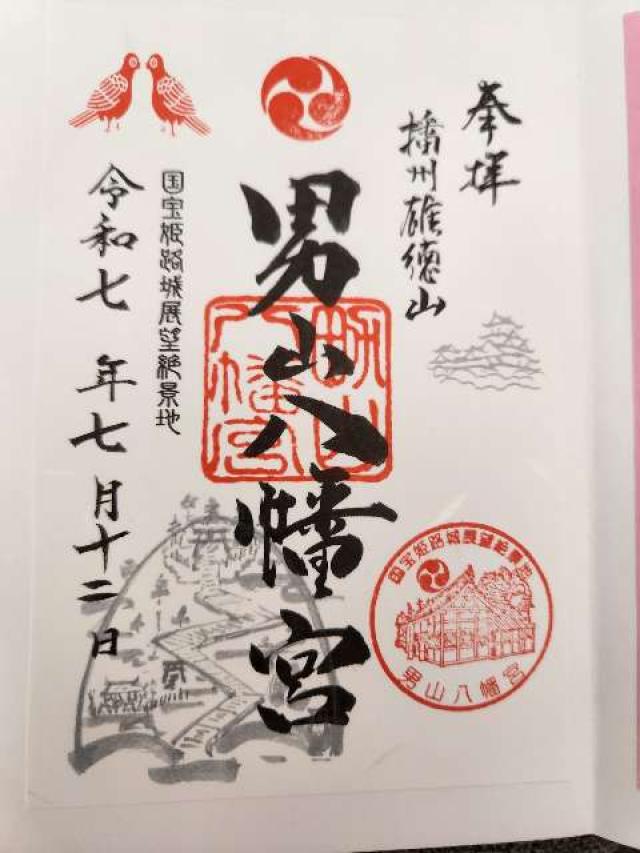 奉拝
播州雄徳山
男山八幡宮
男山八幡宮
国宝姫路城展望絶景地
令和七年七月十二日
国宝姫路城展望絶景地
男山八幡宮